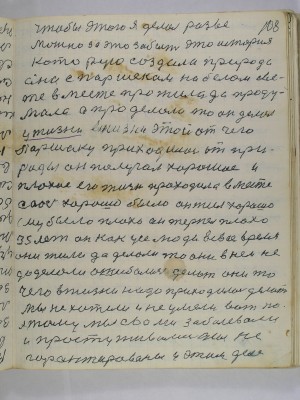 108
чтобы этого я делал разве
можно это забыть это история
которую создала природа
сына с паршеком на белом све-
те вместе прожила да проду-
мала а проделала то он делал
у жизни жизни этой от чего
Паршеку приходилось от при-
роды он получал хорошее и
плохое его жизнь проходила вместе
само хорошо было он жил хорошо
ему было плохо он терпел плохо
35 лет он как все люди все время
они жили да делали то они в ней не
доделали ошибались делать они то
чего в жизни надо приходилось делать
мы не хотели и не умели вот по-
этому мы свами заболевали
и простуживались мы не
гарантированы и этим деле